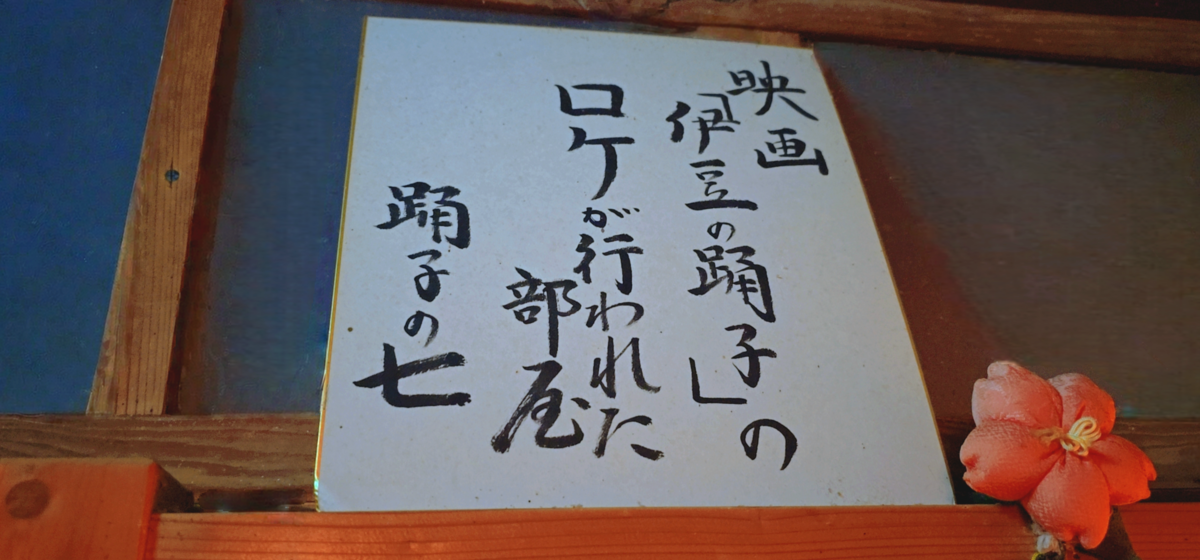 映画
「伊豆の踊子」の
ロケが行われた
部屋
踊子の七